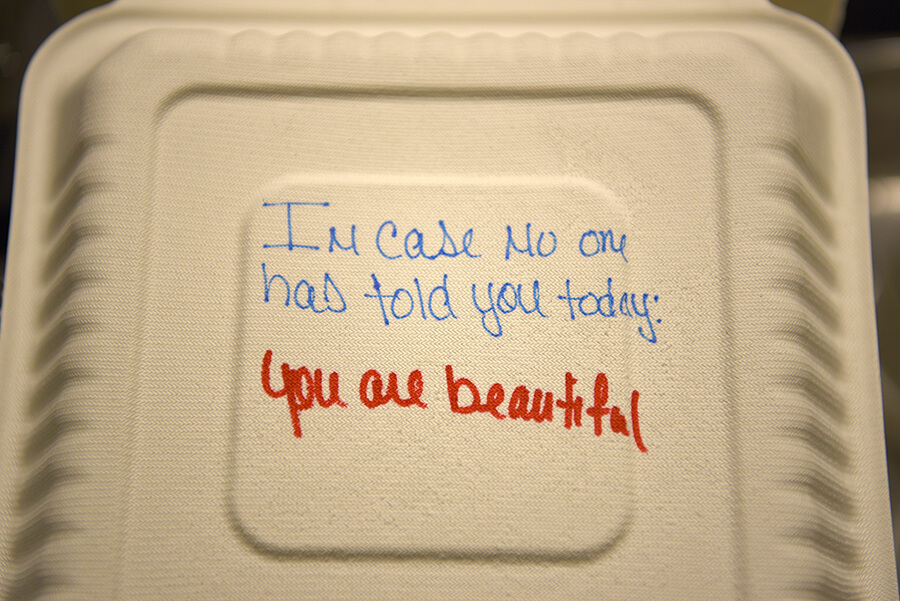 In case no one
has told you today:
you are beautiful